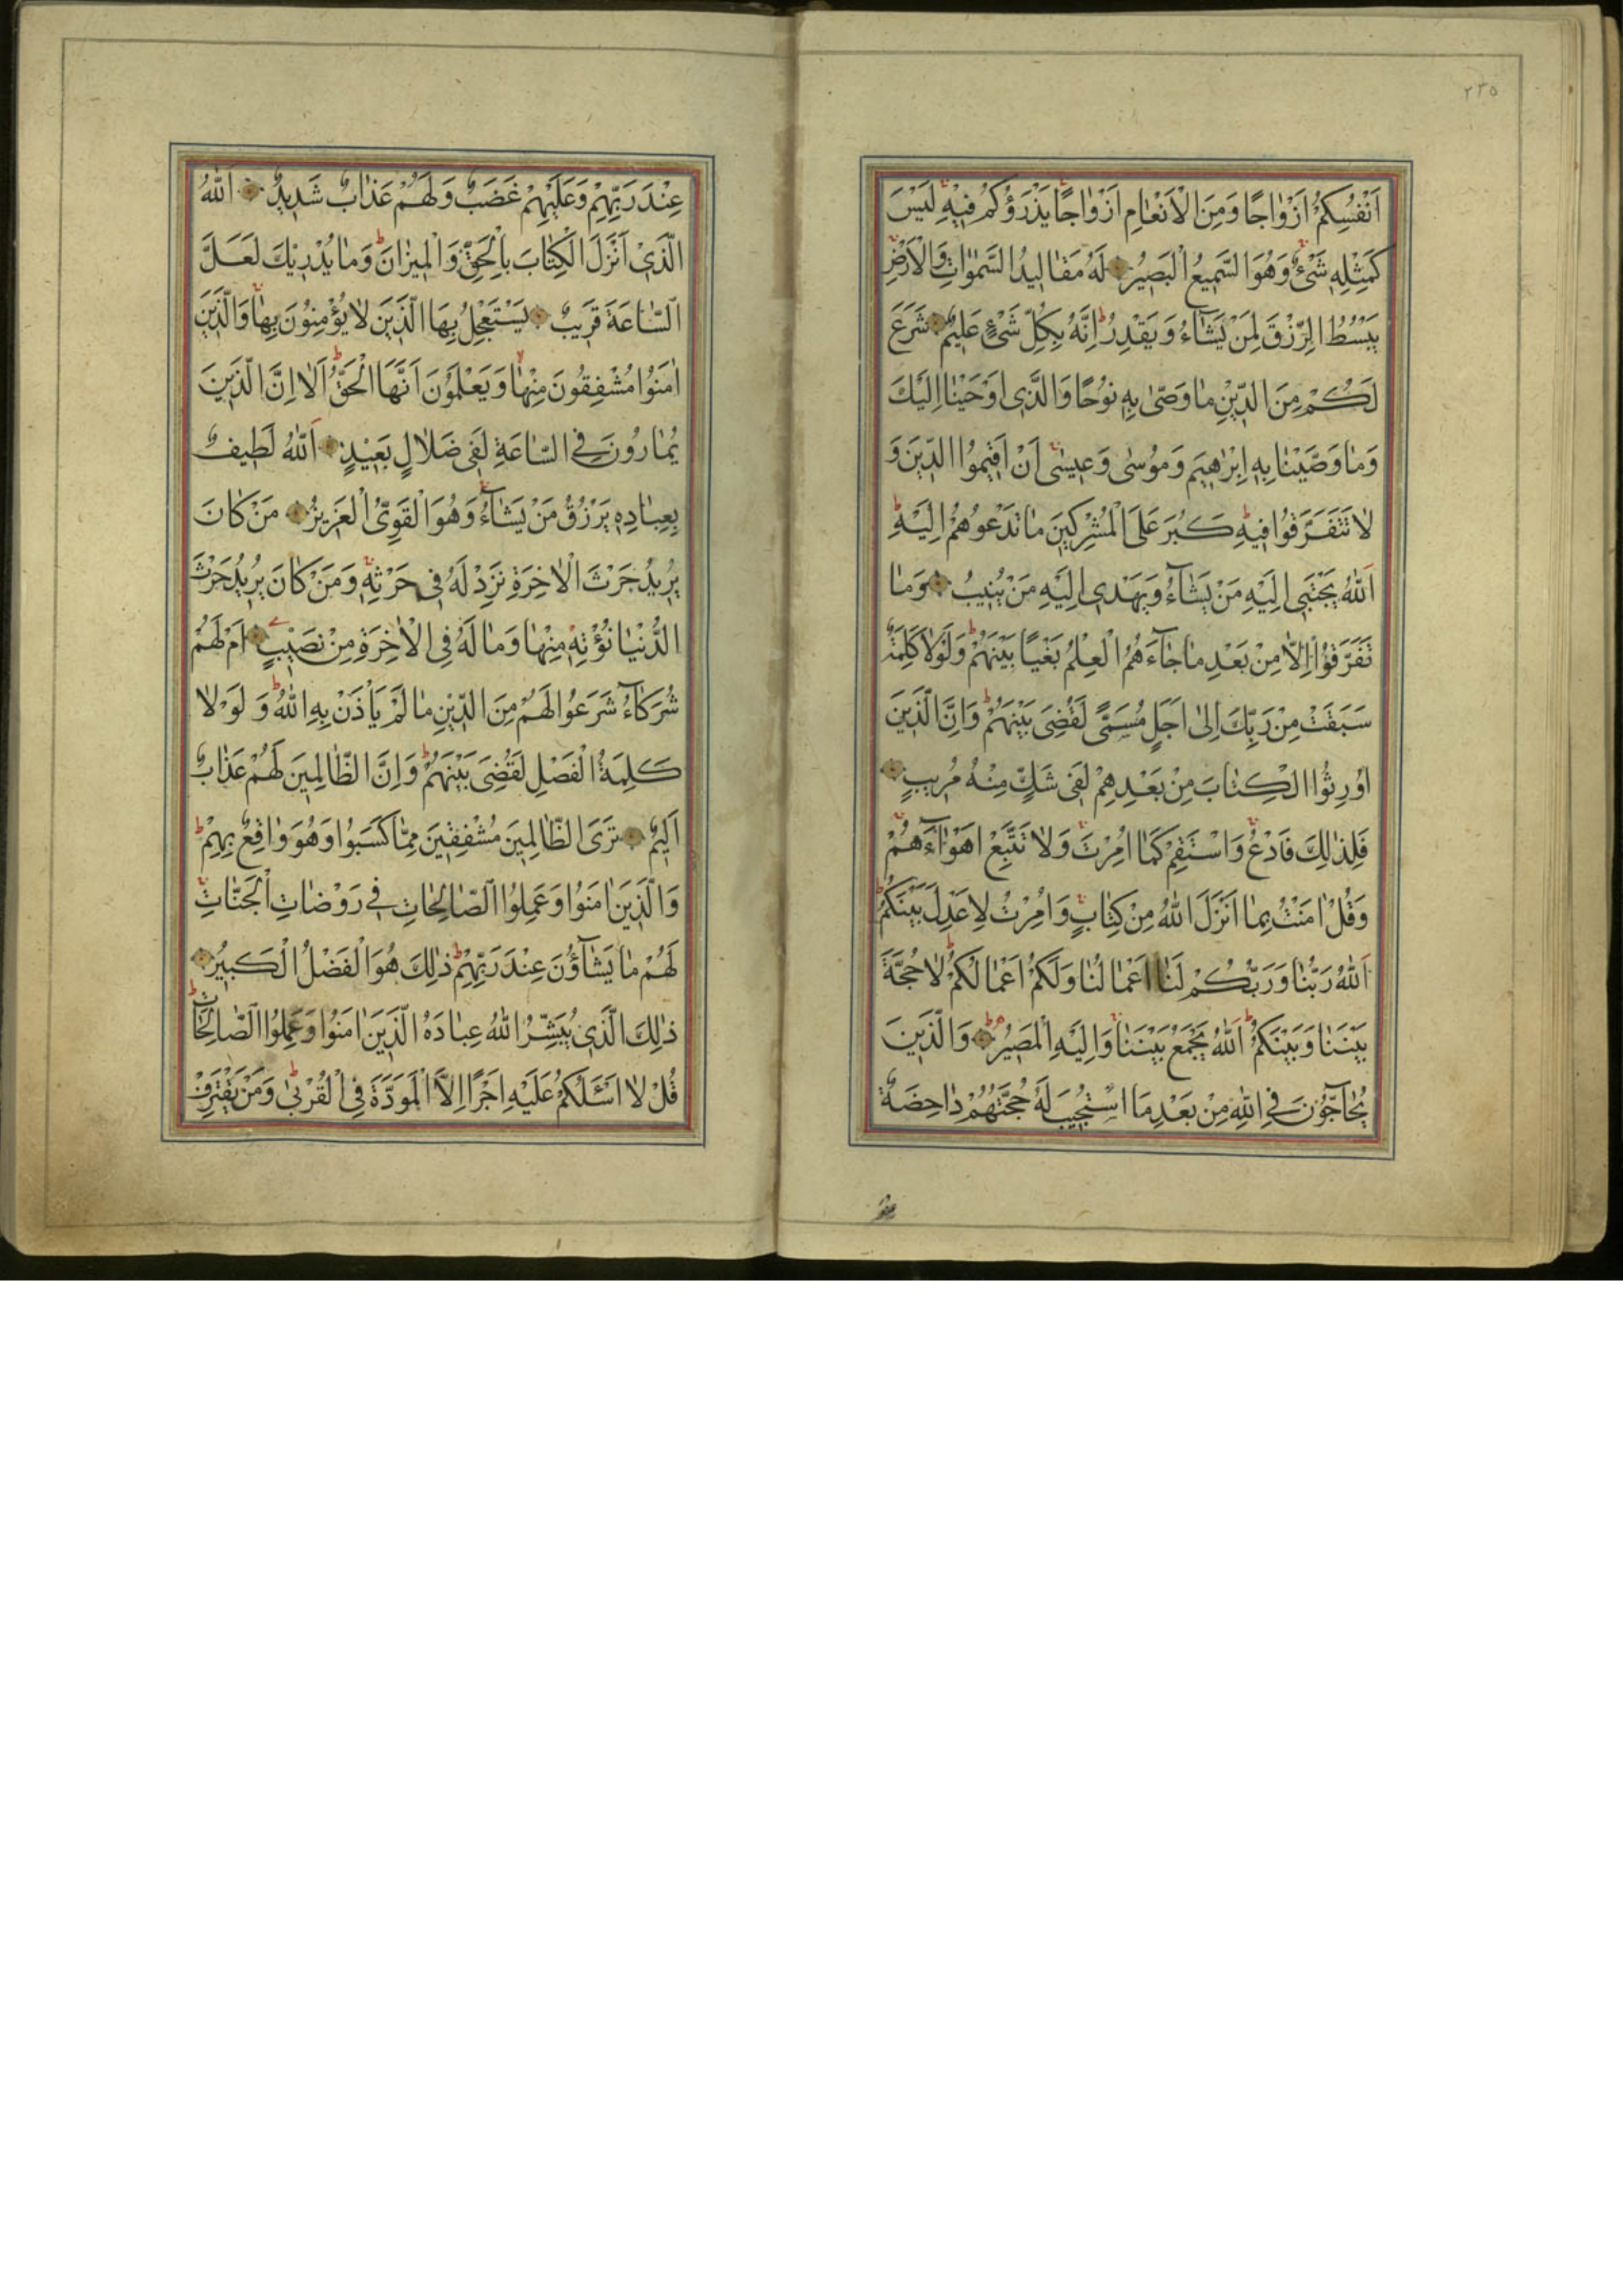 ٢٣٥
اَنْفُسِكُمْ اَزْوٰاجًا وَمِنَ الْاَنْعٰامِ اَزْوٰاجًا يَذْرَؤُكُمْ فِيْهِ لَيْسَ
كَمِثْلِهٖ شَىْءٌ وَهُوَ السَّمِيعُ الْبَصِيْرُ لَهُ مَقٰالِيدُ السَّمٰوٰاتِ وَالْاَرْضِ
يَبْسُطُ الرِّزْقَ لِمَنْ يَشٰآءُ وَيَقْدِرُ اِنَّهُ بِكُلِّ شَىْءٍ عَلِيمٌ شَرَعَ
لَكُمْ مِنَ الدِّيْنِ مٰا وَصّٰى بِهٖ نُوْحًا وَالَّذٖى اَوْحَيْنٰا اِلَيْكَ
وَمٰا وَصَّيْنٰا بِهٖ اِبْرٰهٖيمَ وَمُوْسٰى وَعٖيسٰى اَنْ اَقٖيمُوا الدّٖينَ وَ
لٰا تَتَفَرَّقُوا فٖيهِ كَبُرَ عَلَى الْمُشْرِكٖينَ مٰا تَدْعُوهُمْ اِلَيْهِ
اَللّٰهُ يَجْتَبٖى اِلَيْهِ مَنْ يَشٰآءُ وَيَهْدٖى اِلَيْهِ مَنْ يُنٖيبُ وَمٰا
تَفَرَّقُوْا اِلّٰا مِنْ بَعْدِ مٰا جٰآءَهُمُ الْعِلْمُ بَغْيًا بَيْنَهُمْ وَلَوْلٰا كَلِمَةٌ
سَبَقَتْ مِنْ رَبِّكَ اِلىٰ اَجَلٍ مُسَمًّى لَقُضِىَ بَيْنَهُمْ وَاِنَّ الَّذٖينَ
اُوْرِثُوا الْكِتٰابَ مِنْ بَعْدِهِمْ لَفٖى شَكٍّ مِنْهُ مُرٖيبٍ
فَلِذٰلِكَ فَادْعُ وَاسْتَقِمْ كَمٰا اُمِرْتَ وَلٰا تَتَّبِعْ اَهْوٰآءَهُمْ
وَقُلْ اٰمَنْتُ بِمٰا اَنْزَلَ اللّٰهُ مِنْ كِتٰابٍ وَاُمِرْتُ لِاَعْدِلَ بَيْنَكُمْ
اَللّٰهُ رَبُّنٰا وَرَبُّكُمْ لَنٰا اَعْمٰالُنٰا وَلَكُمْ اَعْمٰالُكُمْ لٰا حُجَّةَ
بَيْنَنٰا وَبَيْنَكُمْ اَللّٰهُ يَجْمَعُ بَيْنَنٰا وَاِلَيْهِ الْمَصٖيرُ وَالَّذٖينَ
يُحٰآجُّوْنَ فِى اللّٰهِ مِنْ بَعْدِ مَا اسْتُجٖيبَ لَهُ حُجَّتُهُمْ دٰاحِضَةٌ
عِنْدَ رَبِّهِمْ وَعَلَيْهِمْ غَضَبٌ وَلَهُمْ عَذٰابٌ شَدٖيدٌ اَللّٰهُ
الَّذٖىْ اَنْزَلَ الْكِتٰابَ بِالْحَقِّ وَالْمٖيزٰانَ وَمٰا يُدْرٖيْكَ لَعَلَّ
السّٰاعَةَ قَرٖيبٌ يَسْتَعْجِلُ بِهَا الَّذٖينَ لٰا يُؤْمِنُوْنَ بِهٰا وَالَّذٖينَ
اٰمَنُوْا مُشْفِقُونَ مِنْهٰا وَيَعْلَمُوْنَ اَنَّهَا الْحَقُّ اَلٰا اِنَّ الَّذٖينَ
يُمٰارُونَ فِى السّٰاعَةِ لَفٖى ضَلٰالٍ بَعٖيْدٍ اَللّٰهُ لَطٖيفٌ
بِعِبٰادِهٖ يَرْزُقُ مَنْ يَشٰآءُ وَهُوَ الْقَوِىُّ الْعَزٖيزُ مَنْ كٰانَ
يُرٖيدُ حَرْثَ الْاٰخِرَةِ نَزِدْ لَهُ فٖى حَرْثِهٖ وَمَنْ كٰانَ يُرٖيدُ حَرْثَ
الدُّنْيٰا نُؤْتِهٖ مِنْهٰا وَمٰا لَهُ فِى الْاٰخِرَةِ مِنْ نَصٖيْبٍ اَمْ لَهُمْ
شُرَكٰآءُ شَرَعُوا لَهُمْ مِنَ الدّٖيْنِ مٰا لَمْ يَأْذَنْ بِهِ اللّٰهُ وَلَوْلٰا
كَلِمَةُ الْفَصْلِ لَقُضِىَ بَيْنَهُمْ وَاِنَّ الظّٰالِمٖينَ لَهُمْ عَذٰابٌ
اَلٖيمٌ تَرَى الظّٰالِمٖينَ مُشْفِقٖينَ مِمّٰا كَسَبُوا وَهُوَ وٰاقِعٌ بِهِمْ
وَالَّذٖينَ اٰمَنُوا وَعَمِلُوا الصّٰالِحٰاتِ فٖى رَوْضٰاتِ الْجَنّٰاتِ
لَهُمْ مٰا يَشٰآؤُنَ عِنْدَ رَبِّهِمْ ذٰلِكَ هُوَ الْفَضْلُ الْكَبٖيرُ
ذٰلِكَ الَّذٖى يُبَشِّرُ اللّٰهُ عِبٰادَهُ الَّذٖينَ اٰمَنُوا وَعَمِلُوا الصّٰالِحٰاتِ
قُلْ لٰا اَسْئَلُكُمْ عَلَيْهِ اَجْرًا اِلَّا الْمَوَدَّةَ فِى الْقُرْبٰى وَمَنْ يَقْتَرِفْ